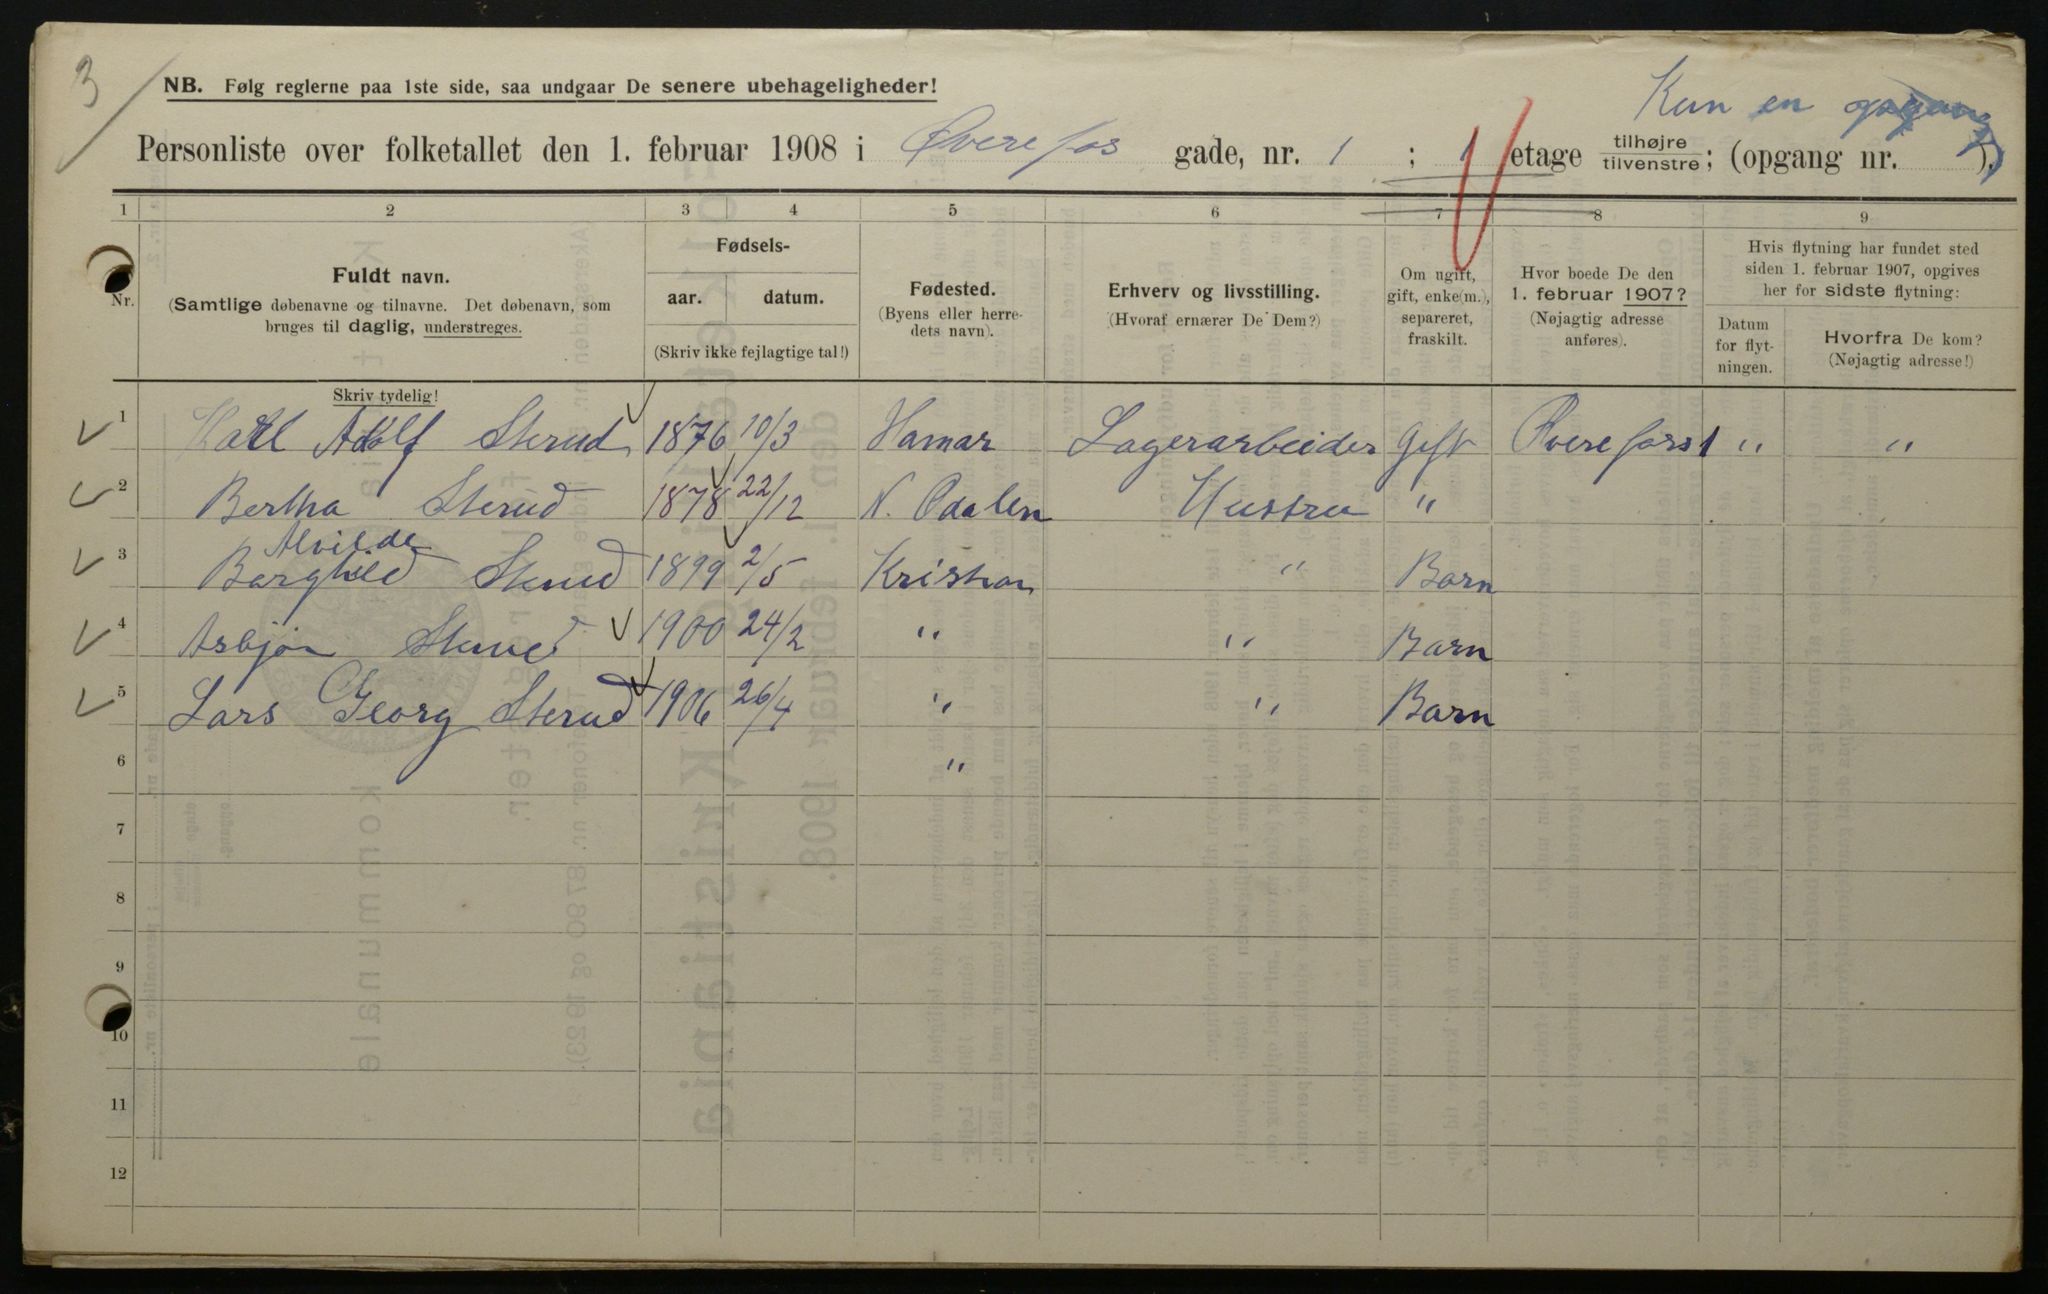 3
Kun en opgang
NB. Følg reglerne paa 1ste side, saa undgaar De senere ubehageligheder!
Personliste over folketallet den 1. februar 1908 i Øvere fos gade, nr. 1 ; 1 etage tilhøjre tilvenstre; (opgang nr. ).
1 2 3 4 5 6 7 8 9
Nr.
Fuldt navn.
(Samtlige døbenavne og tilnavne. Det døbenavn, som
bruges til daglig, understreges.
Skriv tydelig!
Fødsels-
aar. datum.
(Skriv ikke fejlagtige tal!)
Fødested.
(Byens eller herre-
dets navn).
Erhverv og livsstilling.
(Hvoraf ernærer De Dem?)
Om ugift,
gift, enke(m.),
separeret,
fraskilt.
Hvor boede De den
1. februar 1907?
(Nøjagtig adresse
anføres).
Hvis flytning har fundet sted
siden 1. februar 1907, opgives
her for sidste flytning:
Datum
for flyt-
ningen.
Hvorfra De kom?
(Nøjagtig adresse!)
1 Karl Adolf Sterud 1876 10/3 Hamar Lagerarbeider Gift Øvere fors 1 " "
2 Bertha Sterud 1878 22/12 N. Odalen Hustru "
Alvilde
3 Borghild Sterud 1899 2/5 Kristian " Barn
4 Asbjøn Sterud 1900 24/2 " " Barn
5 Lars Georg Sterud 1906 26/4 " " Barn
6 "
7
8
9
10
11
12